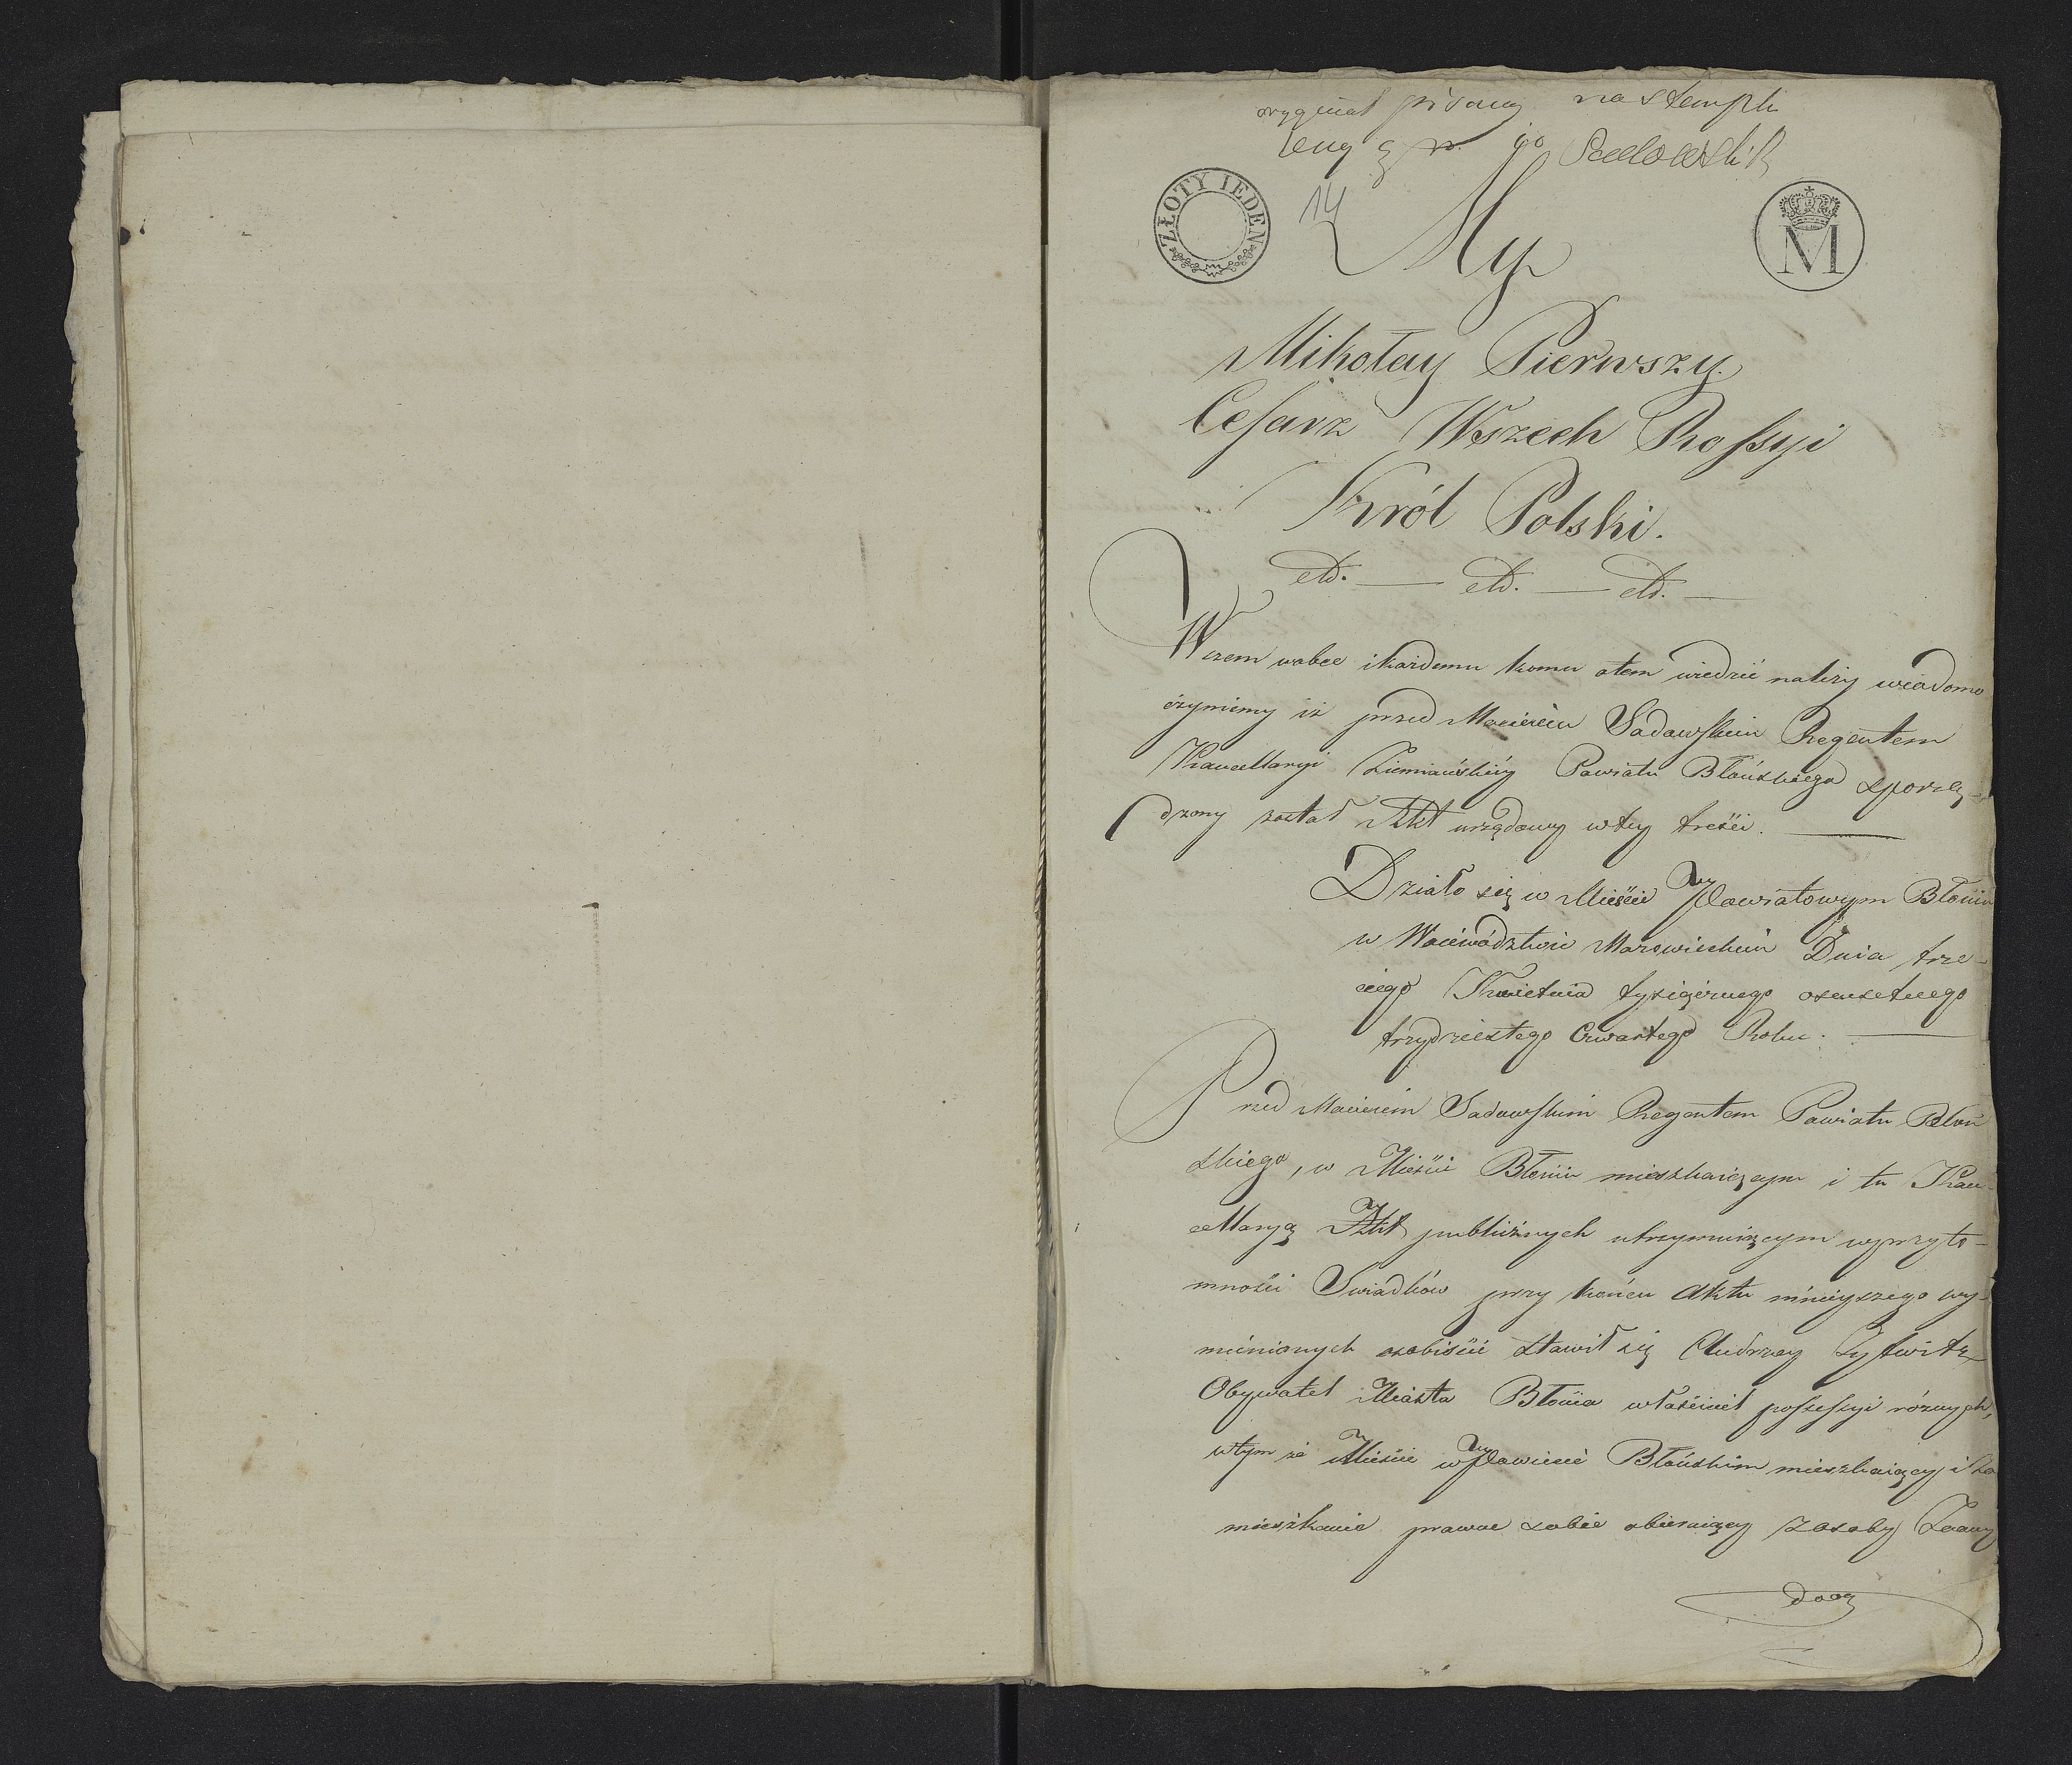 oryginał pisany na stempli
ceny zp. 90 Sadowski R
ZŁOTY IEDEN
14
My
M
Mikołay Pierwszy
Cesarz Wszech Rossyi
Król Polski.
etd. — etd. — etd. —
Wszem wobec i każdemu komu otem wiedzieć należy wiadomo
czyniemy iż przed Macieiem Sadowskim Regentem
Kancellaryi Ziemiańskiéy Powiatu Błońskiego sporzą-
dzony został Akt urzędowy w téy treści. —
Działo się w Mieście Powiatowym Błoniu
w Woiewództwie Mazowieckim Dnia trze-
ciego Kwietnia tysiącznego osmsetnego
trzydziestego Czwartego Roku. —
Przed Macieiem Sadowskim Regentem Powiatu Błoń
skiego, w Mieście Błoniu mieszkaiącym i tu Kan-
cellaryą Akt publicznych utrzymuiącym w przyto-
mności Swiadków przy końcu Aktu ninieyszego wy-
mienionych osobiście stawił się Andrzey
Obywatel Miasta Błonia właściciel possessyi różnych,
w tym że Mieście w Powiecie Błońskim mieszkaiący i za
mieszkanie prawne sobie obieraiący z osoby Znany